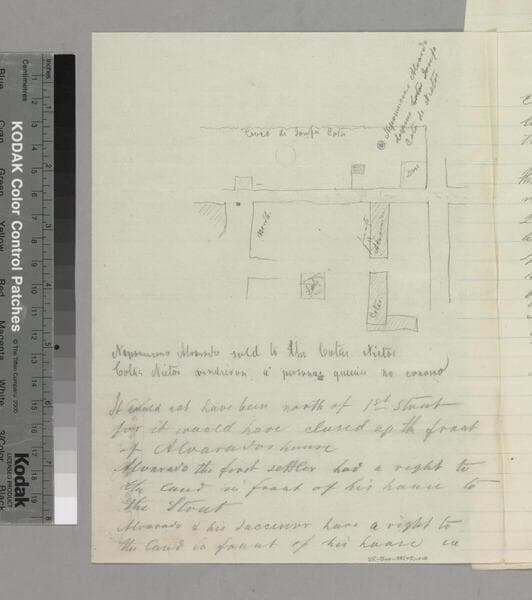 Inches
Centimetres
KODAK Color Control Patches
© The Tiffen Company, 2000
Blue
Cyan
Green
Yellow
Red
Magenta
White
3/Color
Black
Kodak
LICENSED PRODUCT
Nepomuceno Alvarado
Cota de Nieto
Cerco de Cota
North
Alvarado
Cotas
Nepomuceno Alvarado sold to the Cotas, Nietos
Cotas Nietos vendieron á personas quienes no conosco
It could not have been north of 1st Street
for it would have closed up the front
of Alvarados house
Alvarado the first settler had a right to
the land in front of his house to
the Street
Alvarado & his successor have a right to
the land in front of his house in